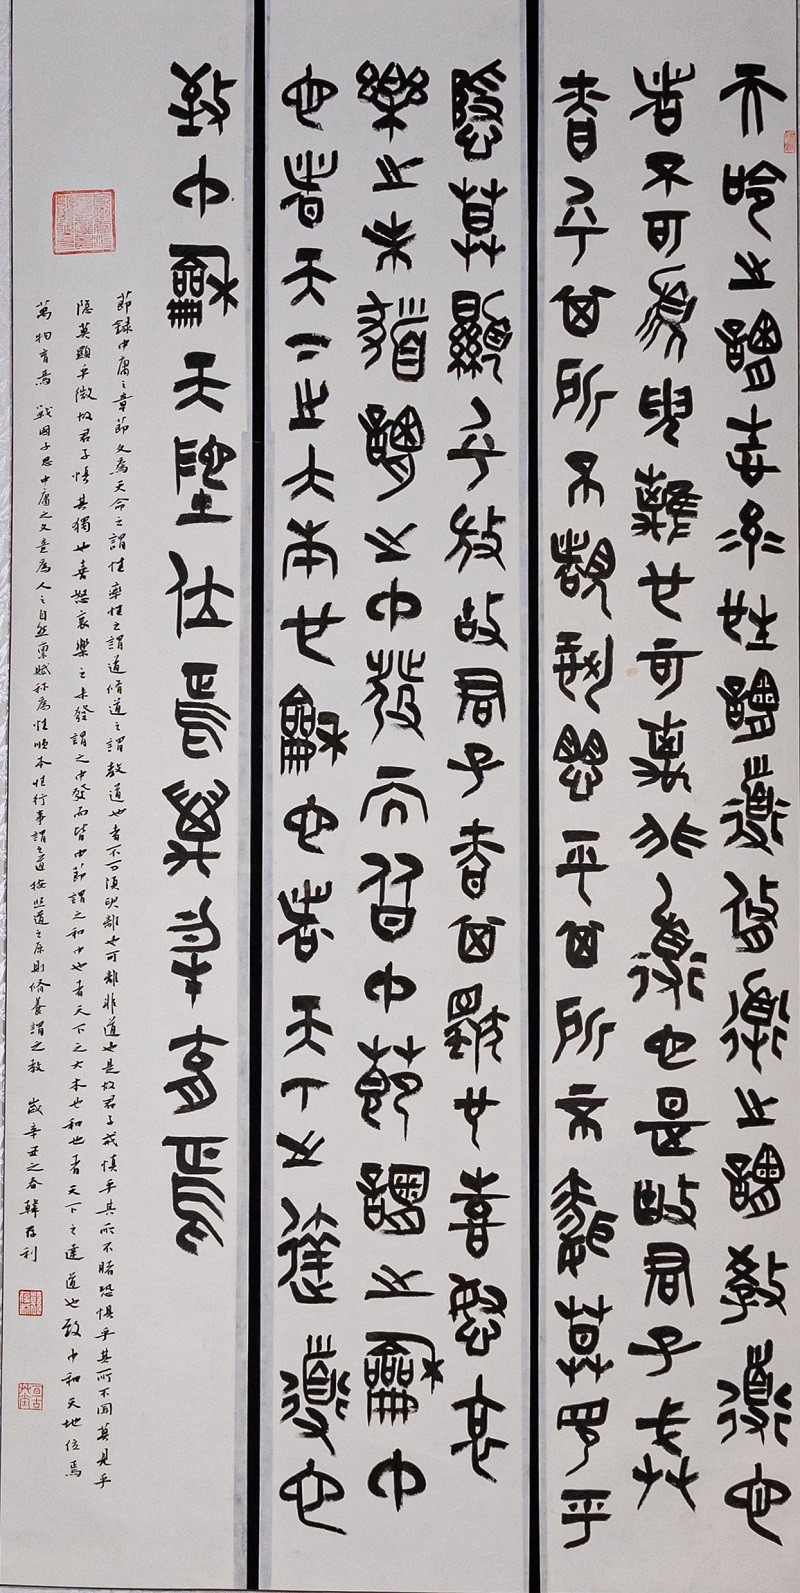 天命之謂性率性謂道脩道之謂教道也
者不可須臾離也可離非道也是故君子戒
慎乎其所不睹恐懼乎其所不聞莫見乎
隱莫顯乎微故君子慎其獨也喜怒哀
樂之未發謂之中發而皆中節謂之和中
也者天下之大本也和也者天下之達道也
致中和天地位焉萬物育焉
節錄中庸之章節文為天命之謂性率性之謂道脩道之謂教道也者不可須臾離也可離非道也是故君子戒慎乎其所不睹恐懼乎其所不聞莫見乎
隐莫顯乎微故君子慎其獨也喜怒哀樂之未發謂之中發而皆中節謂之和中也者天下之大本也和也者天下之達道也致中和天地位焉
萬物育焉 戰國子思中庸之文意為人之自然稟賦稱為性順本性行事謂之道按照道之原則脩養謂之教 歲辛丑之春韓存利